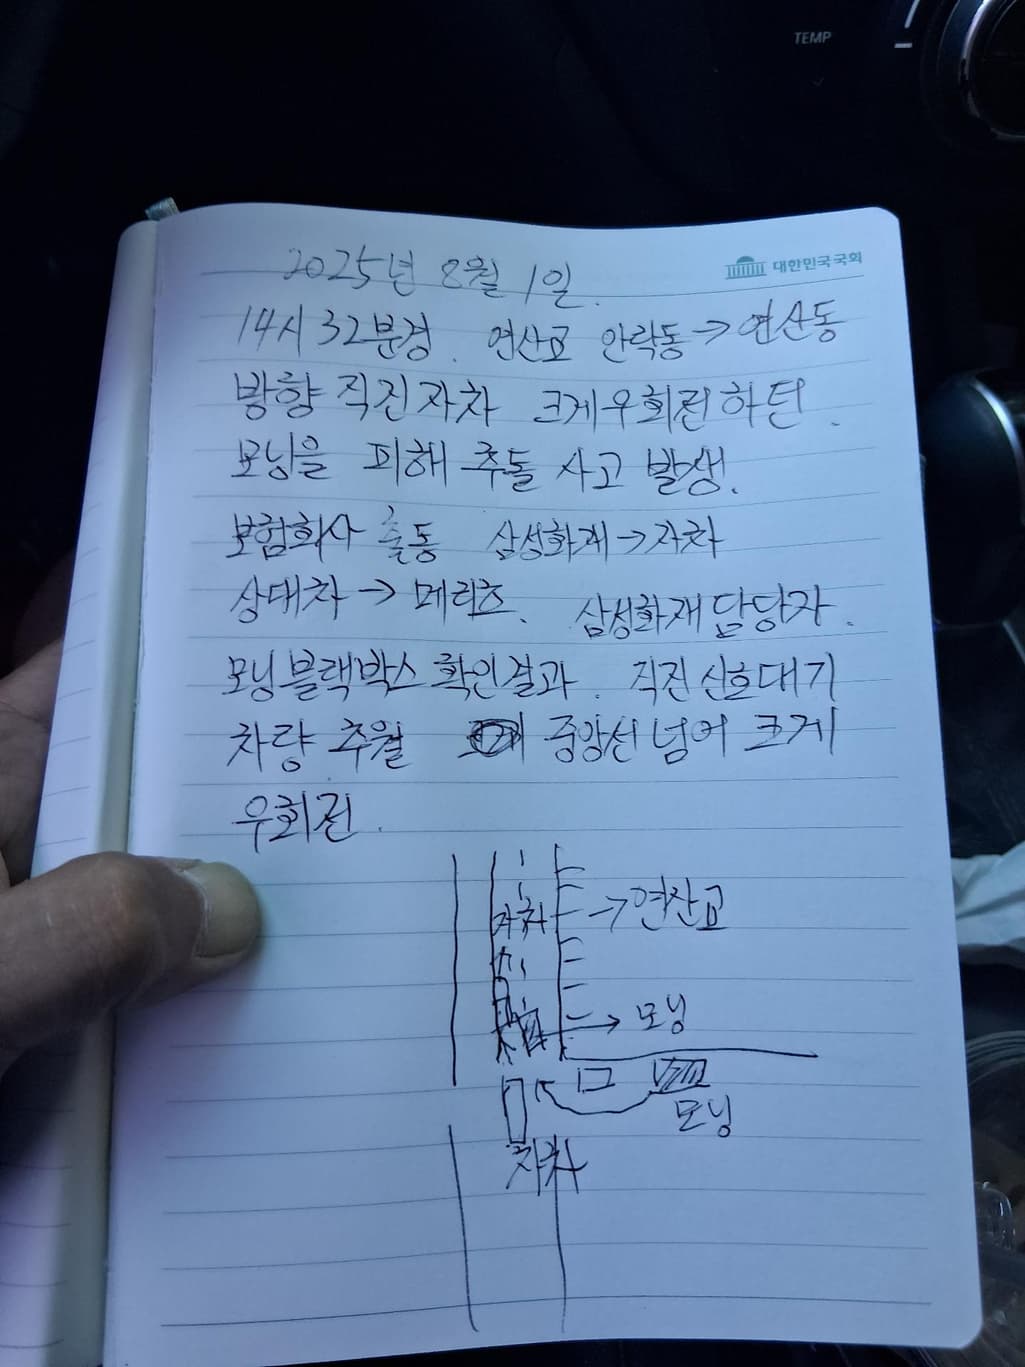 TEMP
대한민국국회
2025년 8월 1일.
14시 32분경. 연산교 안락동→연산동
방향 직진 자차 크게우회전하던.
모닝을 피해 추돌 사고 발생.
보험회사 출동 삼성화재→자차
상대차→메리츠. 삼성화재 담당자.
모닝블랙박스 확인결과. 직진신호대기
차량 추월 중앙선 넘어 크게
우회전.
자차 →연산교
→ 모닝
모닝
자차